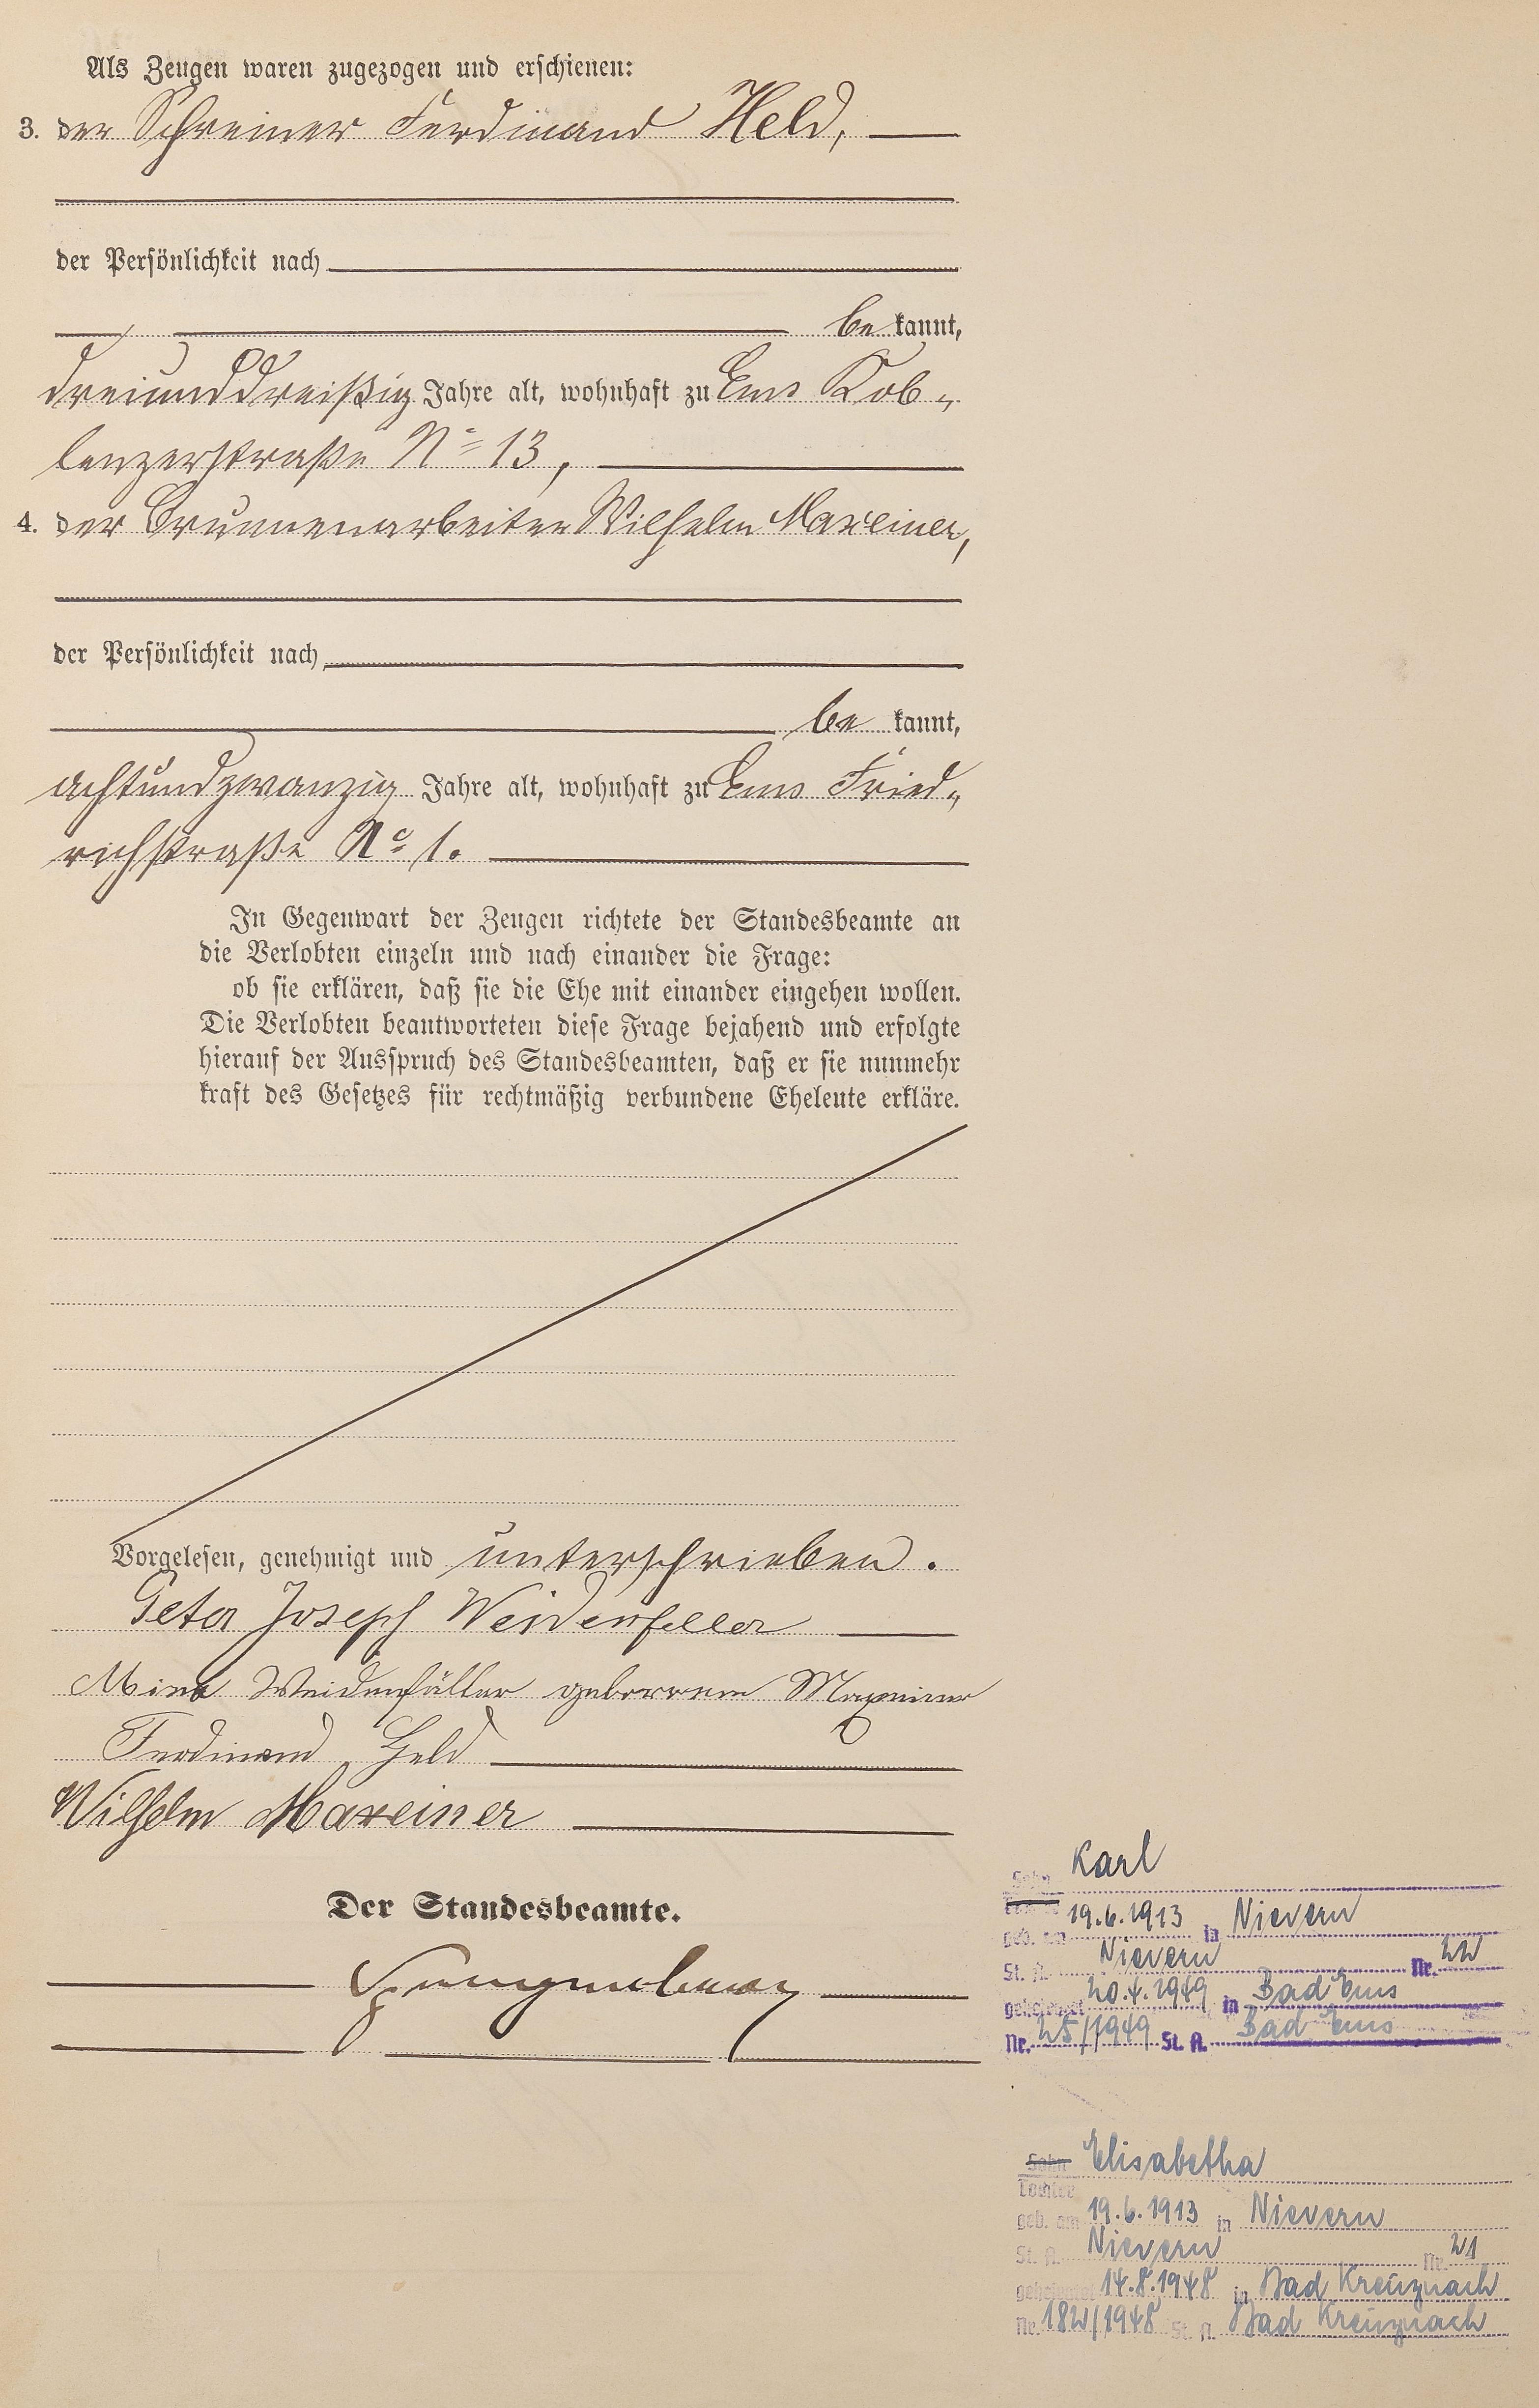 Als Zeugen waren zugezogen und erschienen:
3. der Schreiner Ferdinand Held,
der Persönlichkeit nach
be kannt,
dreiunddreißig Jahre alt, wohnhaft zu Ems Kob-
lenzerstraße No 13,
4. der Brunnenarbeiter Wilhelm Maxeiner,
der Persönlichkeit nach
be kannt,
achtundzwanzig Jahre alt, wohnhaft zu Ems Fried-
richstraße No 1.
In Gegenwart der Zeugen richtete der Standesbeamte an
die Verlobten einzeln und nach einander die Frage:
ob sie erklären, daß sie die Ehe mit einander eingehen wollen.
Die Verlobten beantworteten diese Frage bejahend und erfolgte
hierauf der Ausspruch des Standesbeamten, daß er sie nunmehr
kraft des Gesetzes für rechtmäßig verbundene Eheleute erkläre.
Vorgelesen, genehmigt und unterschrieben.
Peter Joseph Weidenfeller
Mina Weidenfäller geborrene Maxeiner
Ferdinand Held
Wilhelm Maxeiner
Der Standesbeamte.
Sohn Karl
geb. am 19.6.1913 in Nievern
St. A. Nievern Nr. 22
geheiratet 20.4.1949 in Bad Ems
Nr. 25/1949 St. A. Bad Ems
Sohn Elisabetha
Tochter
geb. am 19.6.1913 in Nievern
St. A. Nievern Nr. 21
geheiratet 14.8.1948 in Bad Kreuznach
Nr. 182/1948 St. A. Bad Kreuznach